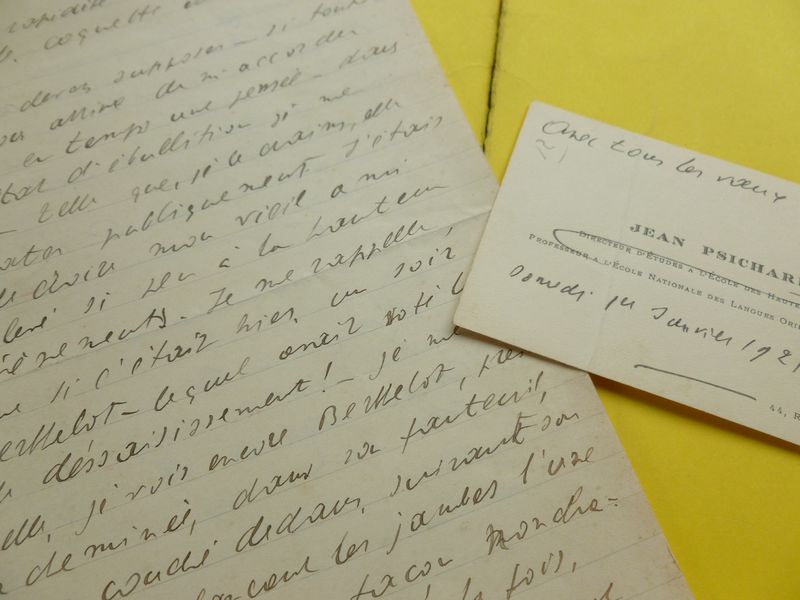 rapidité
coquette
devez supposer – si toute
en temps une pensée – dans
état d'ébullition si me
telle que, je le crains, elle
publiquement. J'étais
droite mon vieil ami
si peu à la hauteur
événements. Je me rappelle,
si c'était hier, un soir
Berthelot – lequel avait voté l
déssaisissement! – Je me
elle, je vois encore Berthelot, près
cheminée, dans son fauteuil,
couché dedans, suivant son
les jambes l'une
façon Mondha-
fois,
Avec tous les vœux
JEAN PSICHARI
DIRECTEUR D'ÉTUDES A L'ÉCOLE DES HAUTE
PROFESSEUR A L'ÉCOLE NATIONALE DES LANGUES ORI
samedi 1er Janvier 1921
44, R